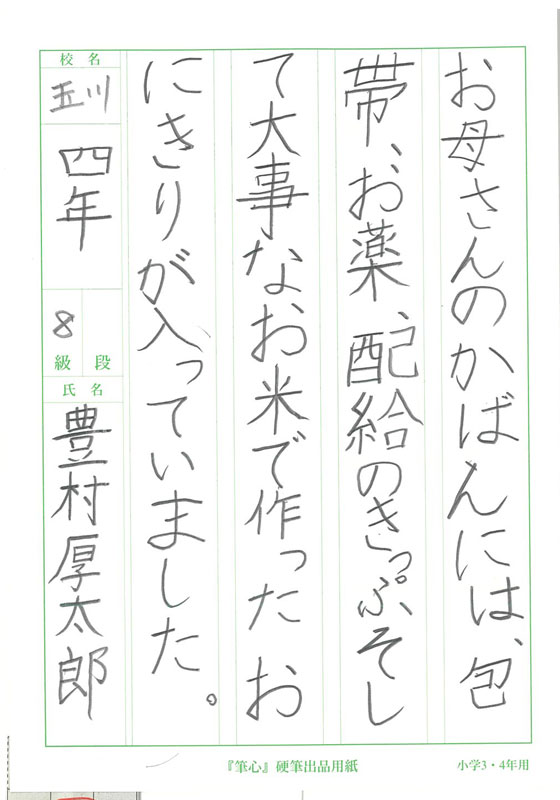 お母さんのかばんには、包
帯、お薬、配給のきっぷ、そし
て大事なお米で作ったお
にぎりが入っていました。
校名
玉川
四年
8
級 段
氏名
豊村厚太郎
『筆心』硬筆出品用紙
小学3・4年用